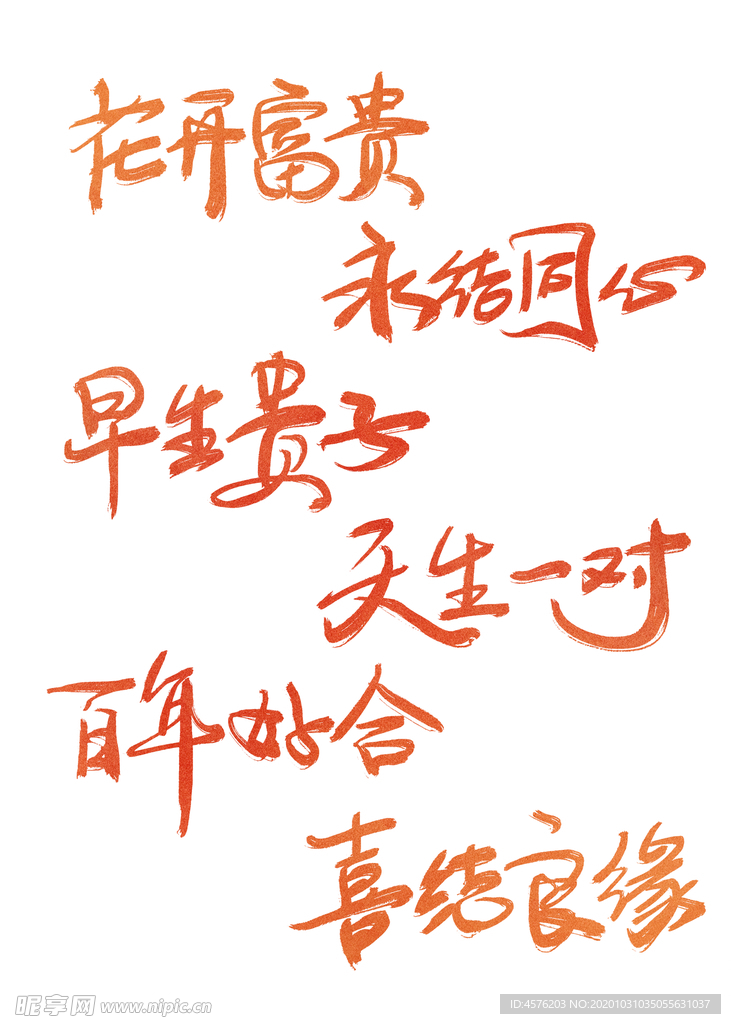 花开富贵
永结同心
早生贵子
天生一对
百年好合
喜结良缘
昵享网 www.nipic.cn
ID:4576203 NO:20201031035055631037